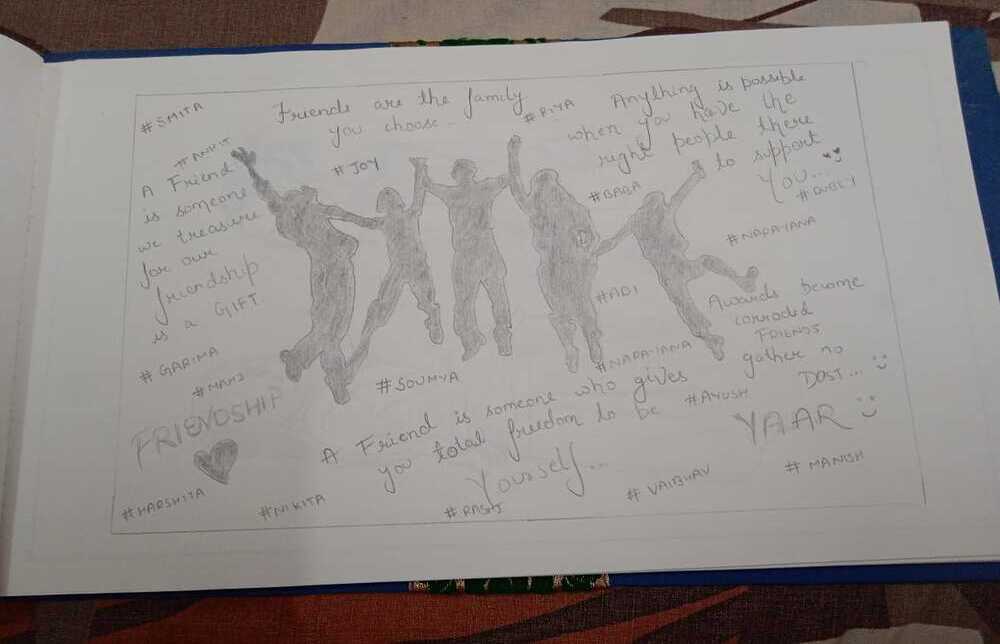 #SMITA
Friends are the family
you choose...
#RIYA
Anything is possible
when you have the
right people there
to support
You...
#ANKIT
#JOY
#BABA
A Friend
is someone
we treasure
for our
friendship
is a GIFT
#NARAYANA
#ADI
Awards become
corroded
FRIENDS
gather no
DOST...
#GARIMA
#MANJ
#SOUMYA
FRIENDSHIP
A Friend is someone who gives
you total freedom to be
Yourself...
#AYUSH
YAAR
#HARSHITA
#NIKITA
#RASHI
#VAIBHAV
#MANISH